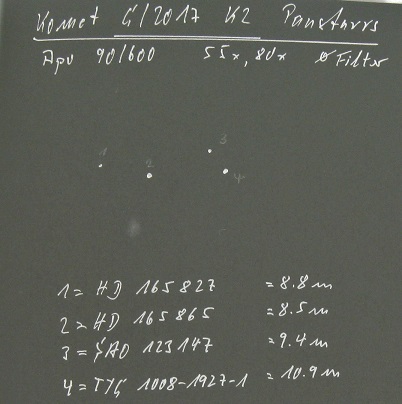 Komet C/2017 K2 Panstarrs
Apo 90/600 55x, 80x ø Filter
3
1
2
4
1 = HD 165827 = 8.8 m
2 = HD 165865 = 8.5 m
3 = SAO 123147 = 9.4 m
4 = TYC 1008-1927-1 = 10.9 m